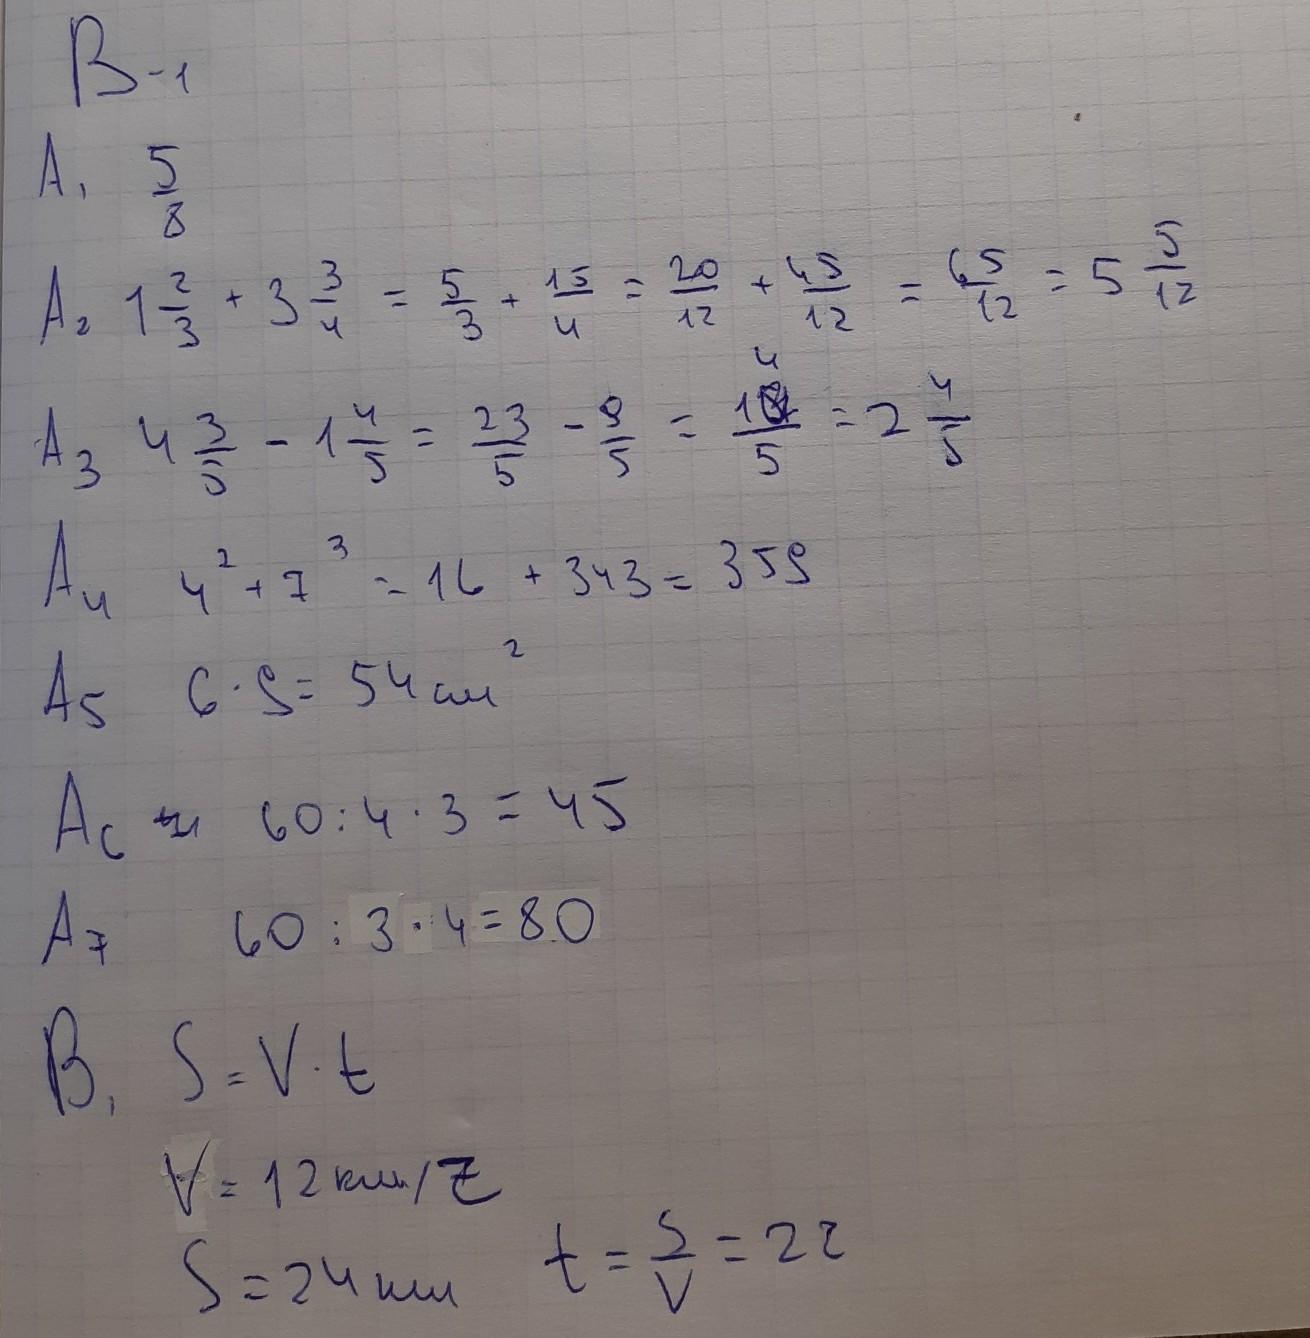 В-1
A1 5/8
A2 1 2/3 + 3 3/4 = 5/3 + 15/4 = 20/12 + 45/12 = 65/12 = 5 5/12
A3 4 3/5 - 1 4/5 = 23/5 - 9/5 = 14/5 = 2 4/5
A4 4² + 7³ = 16 + 343 = 359
A5 6 · 9 = 54 см²
A6 60 : 4 · 3 = 45
A7 60 : 3 · 4 = 80
B1 S = V · t
V = 12 км/г
S = 24 км t = S/V = 2г